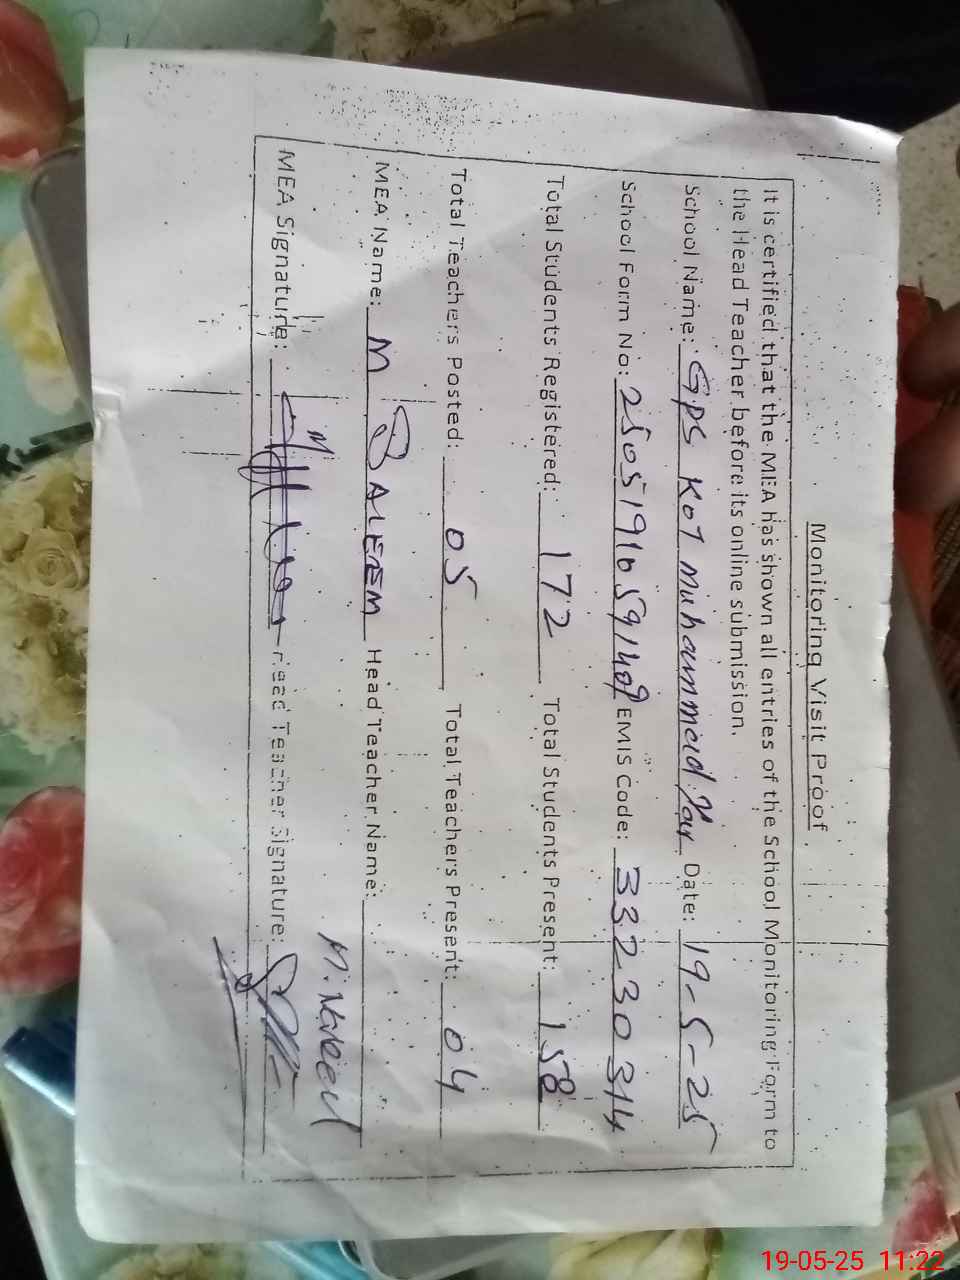 Monitoring Visit Proof
It is certified that the MEA has shown all entries of the School Monitoring Form to
the Head Teacher before its online submission.
School Name: GPS Kot Muhammad Yar Date: 19-5-25
School Form No: 2505191059140 EMIS Code: 33230314
Total Students Registered: 172 Total Students Present: 158
Total Teachers Posted: 05 Total Teachers Present: 04
MEA Name: M SALEEM Head Teacher Name: M. Naveed
MEA Signature: Head Teacher Signature:
19-05-25 11:22